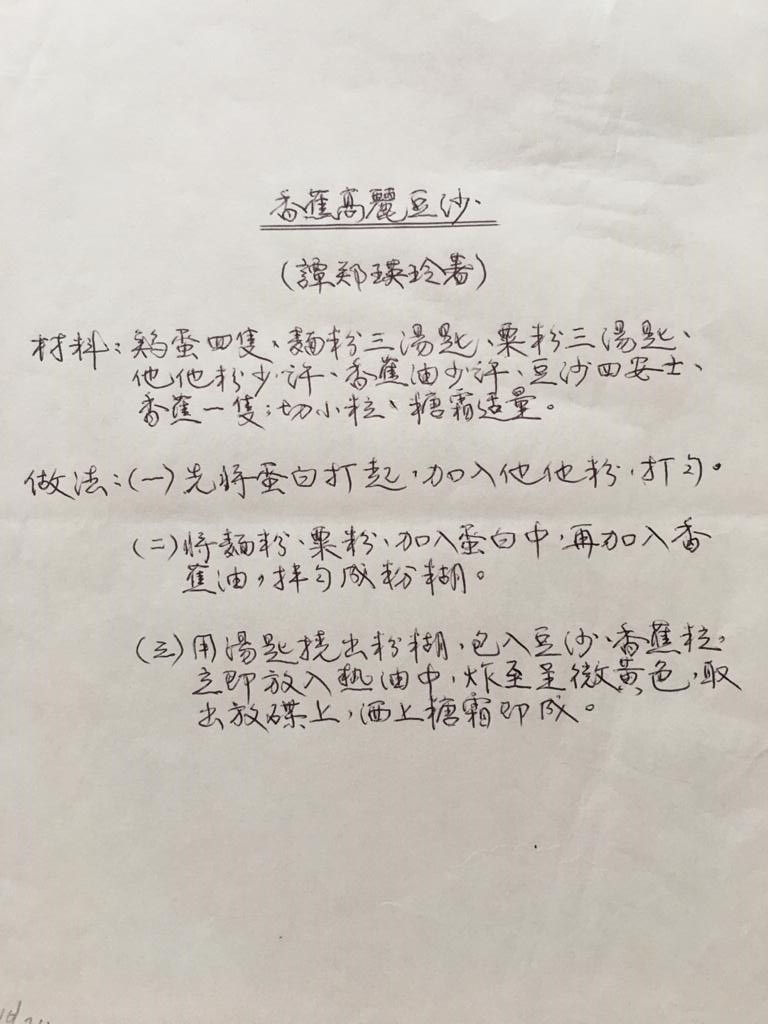 香蕉高麗豆沙
(譚鄭瑛玲著)
材料：鷄蛋四隻、麵粉三湯匙、粟粉三湯匙、
他他粉少許、香蕉油少許、豆沙四安士、
香蕉一隻：切小粒、糖霜适量。
做法：(一)先將蛋白打起，加入他他粉，打勻。
(二)將麵粉、粟粉、加入蛋白中，再加入香
蕉油，拌勻成粉糊。
(三)用湯匙撓出粉糊，包入豆沙、香蕉粒，
立即放入熱油中，炸至呈微黃色，取
出放碟上，洒上糖霜即成。